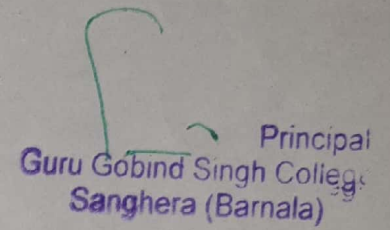 Principal
Guru Gobind Singh College
Sanghera (Barnala)